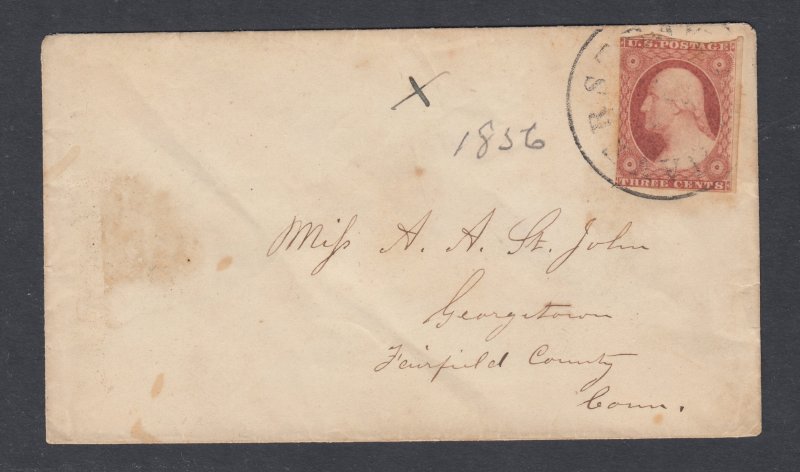 U.S. POSTAGE
THREE CENTS
X
1856
Miss A. A. St. John
Georgetown
Fairfield County
Conn.